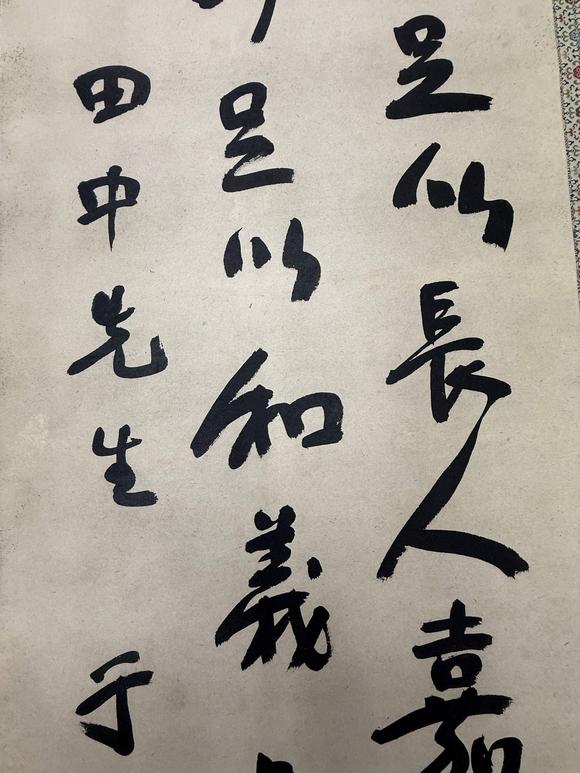 足以長人嘉
足以和義
田中先生 于